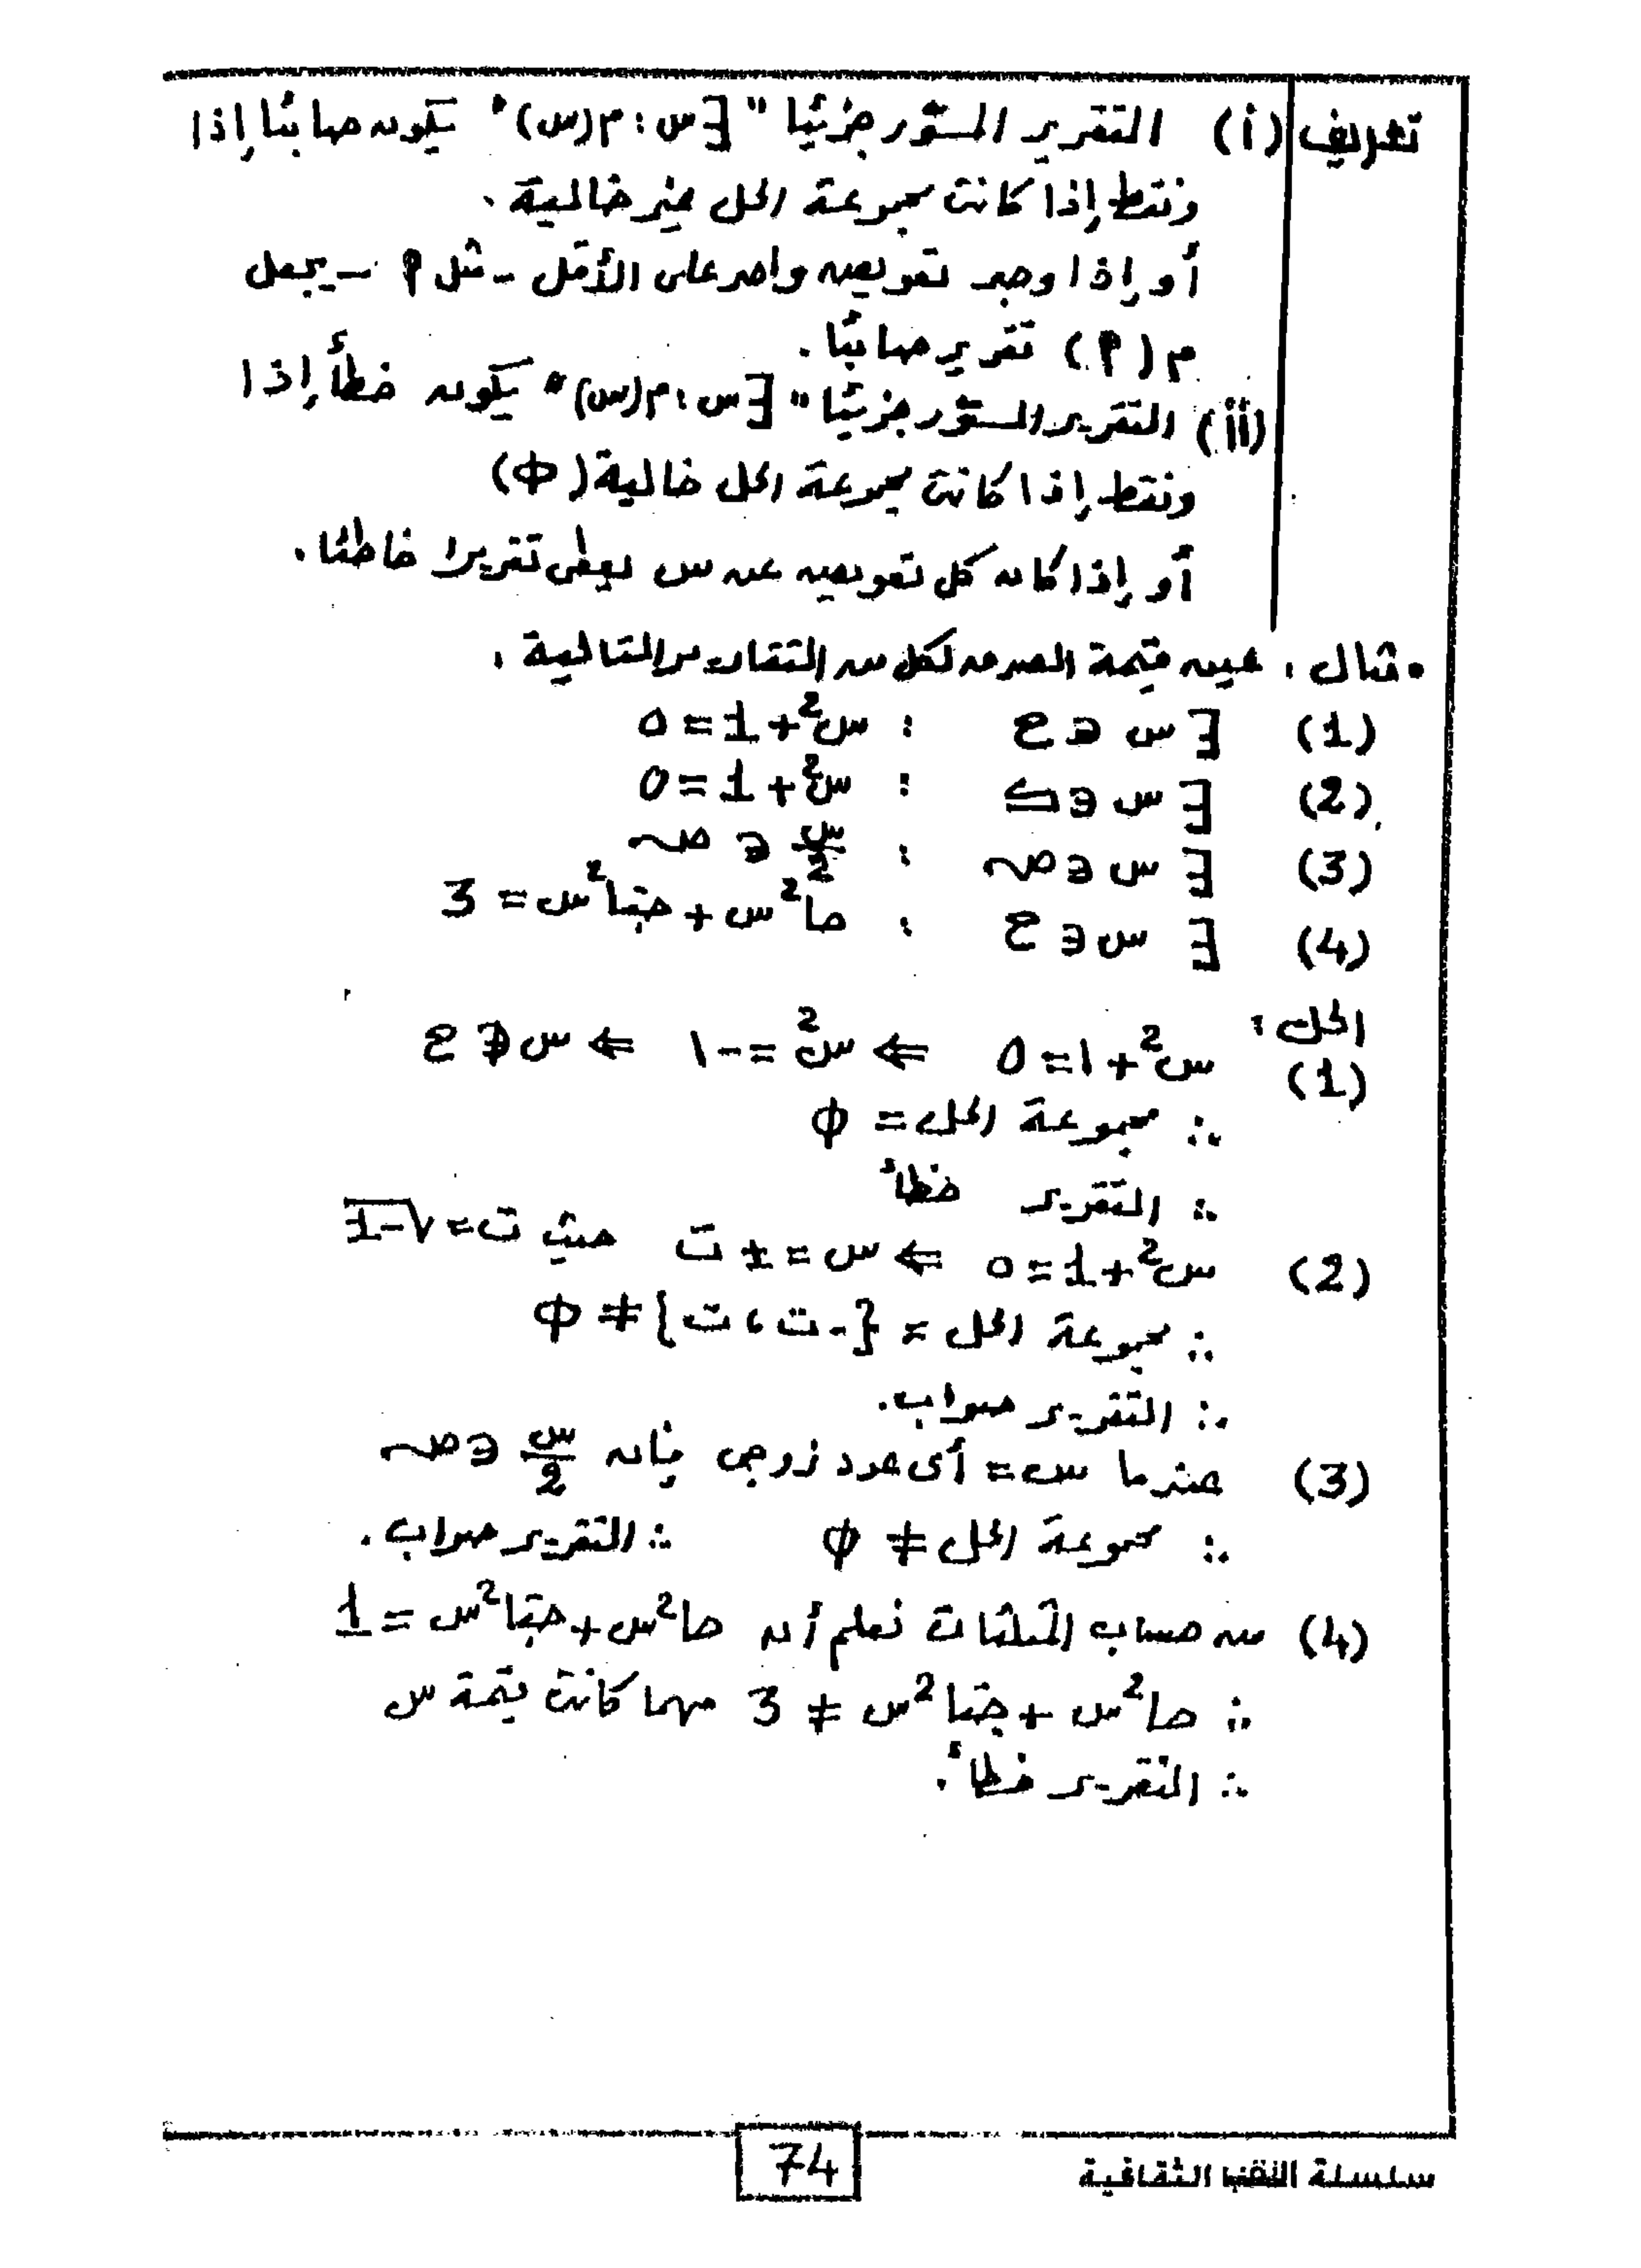 تعريف (i) التقرير المسّور جزئيا " ∃ س : م(س) " يكون صائبا إذا
وفقط إذا كانت مجموعة الحل غير خالية .
أو إذا وجد تعويض واحد على الأقل - مثل أ - يجعل
م (أ) تقرير صائبا .
(ii) التقرير المسّور جزئيا " ∃ س : م(س) " يكون خطأ إذا
وفقط إذا كانت مجموعة الحل خالية (Φ)
أو إذا كان كل تعويض عن س يعطى تقريرا خاطئا .
• مثال : عين قيمة الصدق لكل من التقارير التالية :
(1) ∃ س ∈ ح : س² + 1 = 0
(2) ∃ س ∈ ك : س² + 1 = 0
(3) ∃ س ∈ ص : س/2 ∈ ص
(4) ∃ س ∈ ح : حا² س + حتا² س = 3
الحل :
(1) س² + 1 = 0 ⇐ س² = -1 ⇐ س ∉ ح
∴ مجموعة الحل = Φ
∴ التقرير خطأ
(2) س² + 1 = 0 ⇐ س = ± ت حيث ت = √-1
∴ مجموعة الحل = {- ت ، ت} ≠ Φ
∴ التقرير صواب .
(3) عندما س = أى عدد زوجي فإن س/2 ∈ ص
∴ مجموعة الحل ≠ Φ ∴ التقرير صواب .
(4) من حساب المثلثات نعلم أن حا² س + حتا² س = 1
∴ حا² س + حتا² س ≠ 3 مهما كانت قيمة س
∴ التقرير خطأ .
74
سلسلة الثقافية